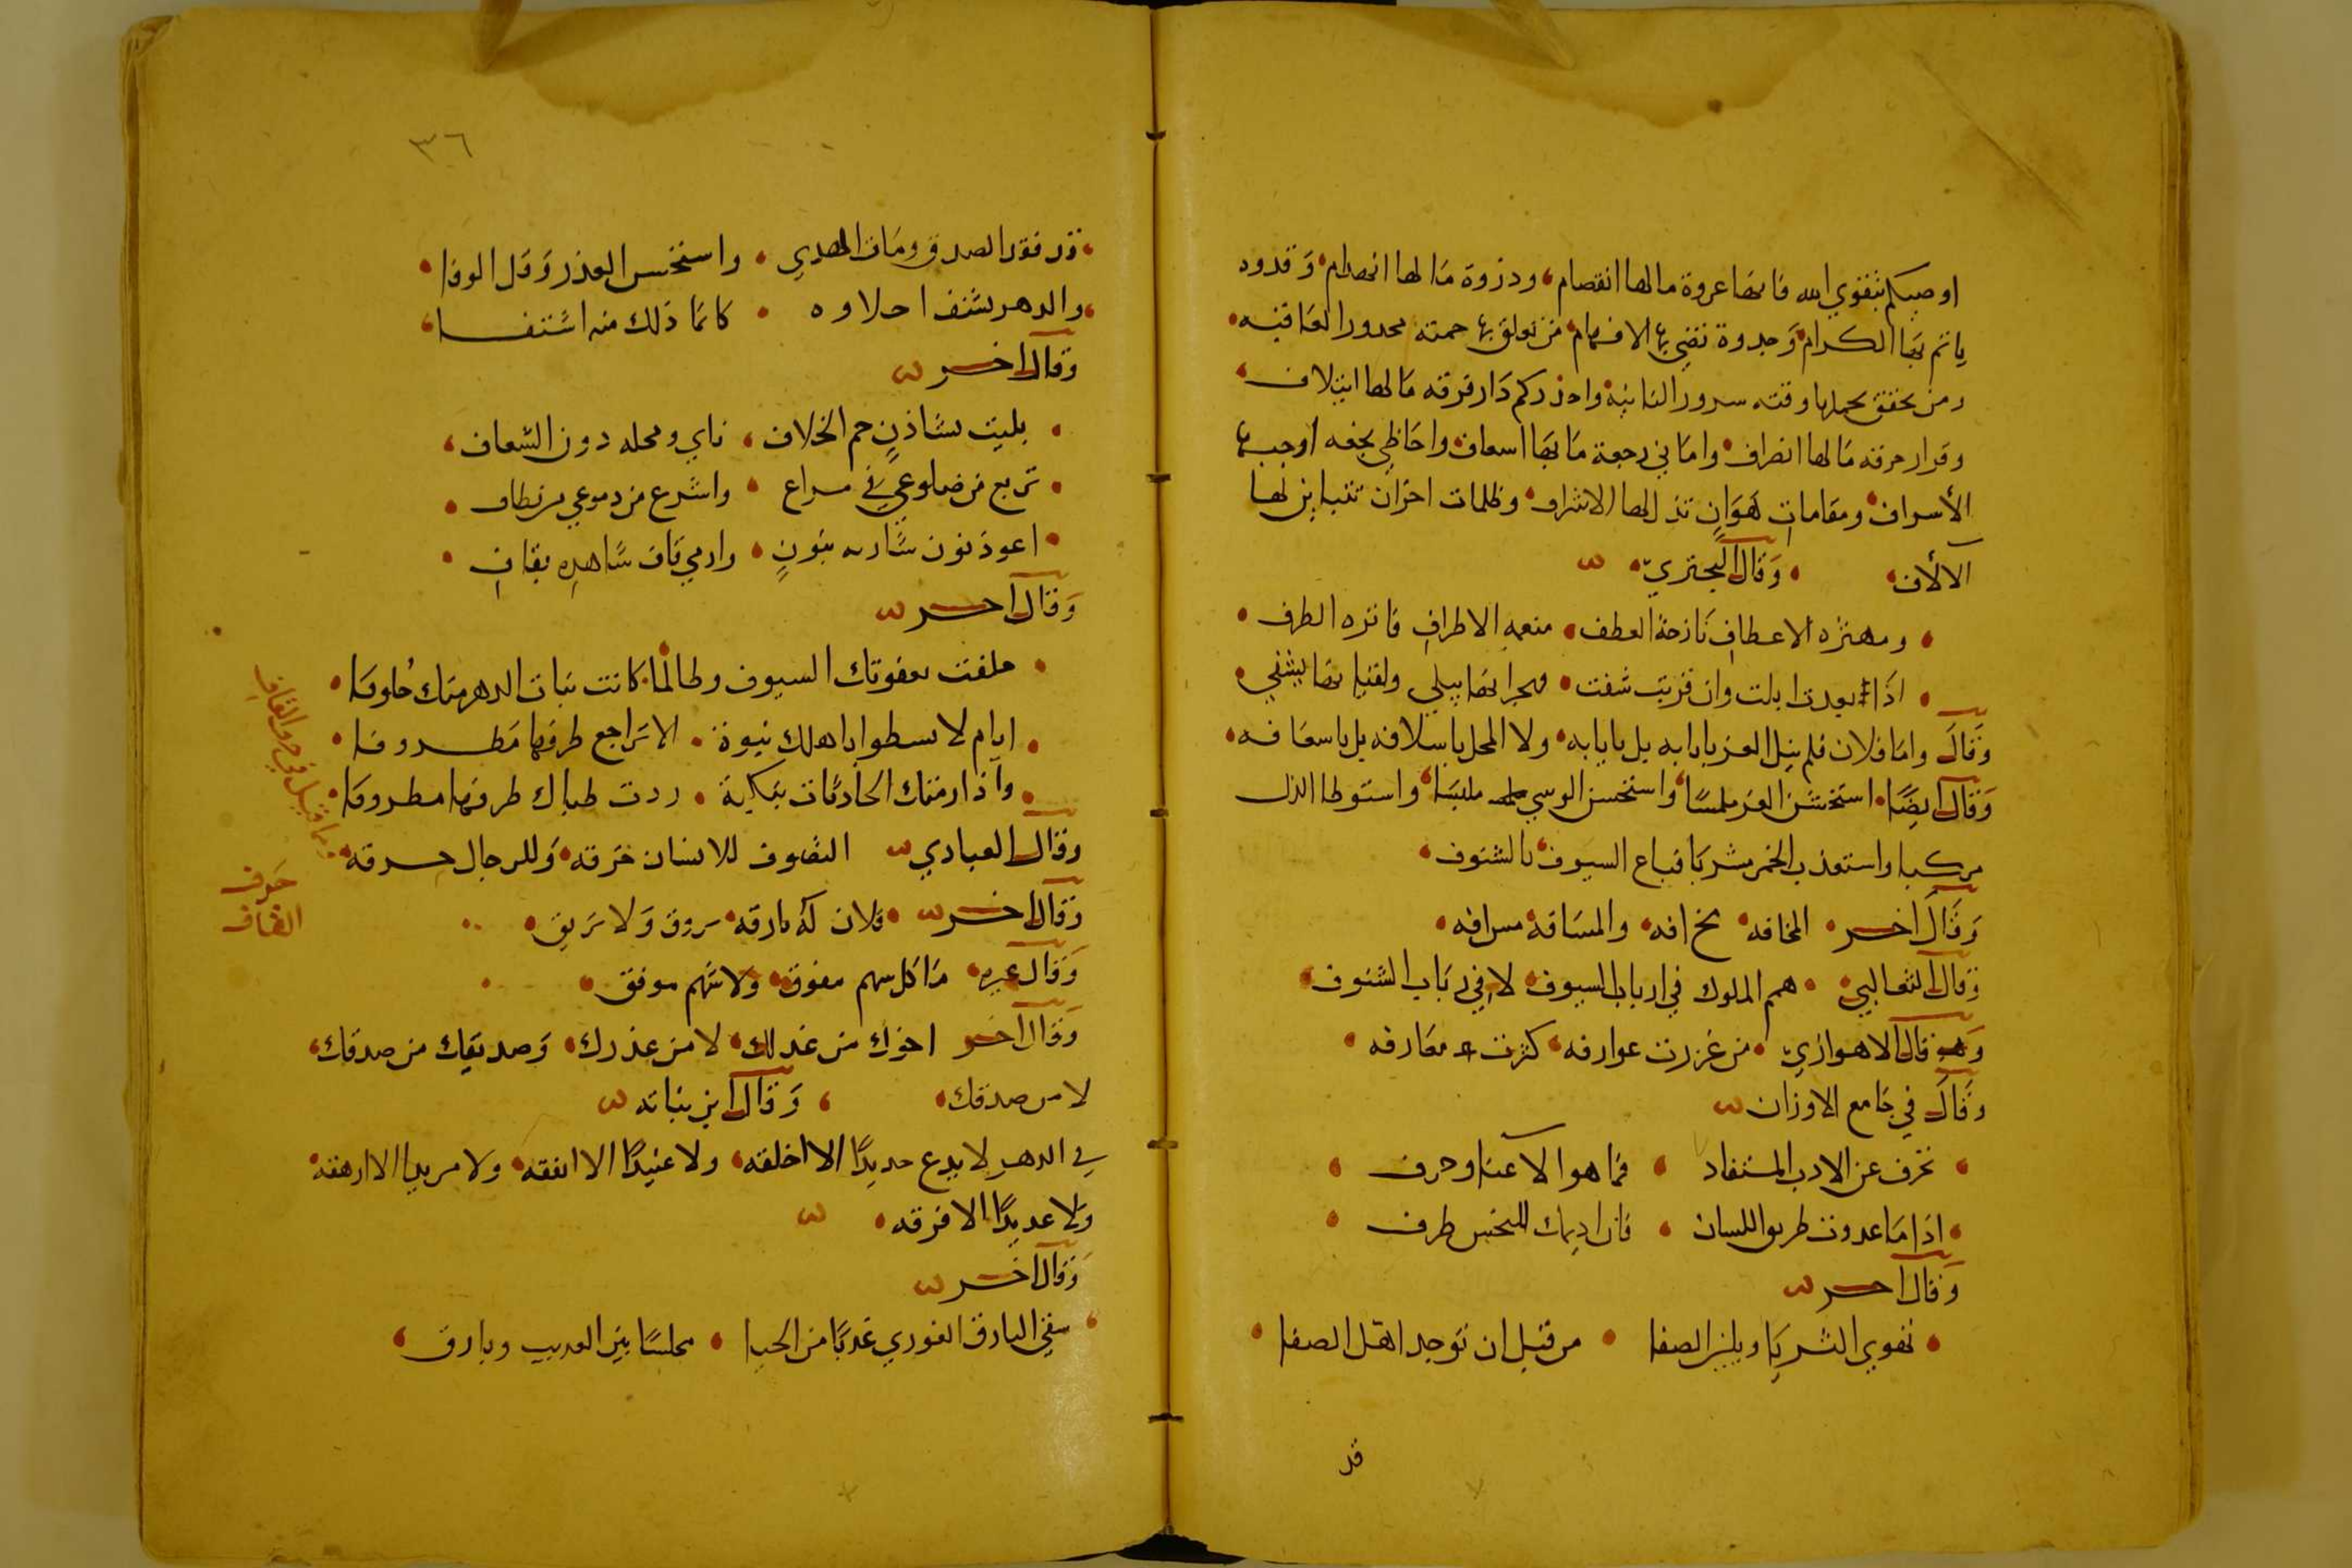 اوصيكم بتقوي الله فانها عروة مالها انفصام، ودزوة مَا لها انهدام، وَقدوه
ياتم بهَا الكرام، وَجدوة تضي بها الافهام، من تعلق بها حمته محدور العَاقبه،
ومن تحقق بحملها وقته سرور النائبة، واحذركم دَار فرقه مَا لها ايتلاف،
وقرار حرقه مَا لها انصراف، واما في رجعة مَا بهَا اسعاف، واحَاظي بجفه اوجبها
الأسراف، ومقاماتِ هَوَانٍ تذ لها الاشراف، وظلمات احزان تتباين لها
الآلأف، وَقال البحتريّ
ومهتزه الاعطافِ نَازحة العطف، منعمه الاطرافِ فاتره الطرف
اذَا بعدت ابلت وان قربت شفت، فهجرانها يبلي ولقيانها يشفي
وَقَالَ وامَا فلان فلم ينل العز بابَابه بل بابَابه، ولا المحل باسلافه بل باسعَافه،
وَقَالَ ايضًا، استخشن العز ملمسًا، واستحسن الوسي ملبسًا، واستوطا الذل
مركبا، واستعذب الخمر مشربَا، فباع السيوف، بالشنوف،
وَقَالَ اخر، المخافه، مخ افه، والمسَافة، مس افه،
وَقَالَ الثعَالبي، همم الملوك في ارباب السيوف، لا في ربَاب الشنوف،
وَقَالَ الاهوَازيّ، من غزرت عوارفه، كثرت معَارفه
وَقَالَ في جَامع الاوزان
تحرف عن الادب المستفاد، فمَا هو الا عنا وحرف
اذَا مَا عدوت طريق اللسان، فان اديمك للبخس طرف
وَقَالَ اخر
تهوي الثريَا ويلين الصفا، من قبل ان توجد اهل الصفا
قد
٣٦
قد فقد الصدق ومَات الهدي، واستحسن الغدر وَقل الوفا
والدهر يشتف احلاوه، كانمَا ذلك منه اشتفــا
وقال اخر
بليت بشَاذنٍ حم الخلاف، ناي ومحله دون الشعاف
تربع من ضلوعي في مراع، واشرع من دموعي من نطاف
اعوذ نون شاربه بنونٍ، وارمي قاف شَاهده بقاف
وَقال اخر
حلفت بعفوتك السيوف وطالما، كانت بنات الدهر منك خلوفَا
ايام لا يسطوا باهلك نبوة، الا تَراجع طرفها مَطروفا
وآذا رمتك الحادثات بنكبة، ردت ظباك طرفها مطروفا
وقال العبادي التصوف للانسان خرقه، وَللرجال حرقه،
وَقال اخر، فلان كَه بارقه، تروق وَلا تَريق،
وَقال غيره، مَا كل سهم مفوق، وَلا شهم موفق،
وَقال اخر اخوك من عدلك، لا من عذرك، وَصديقك من صدقك،
لا من صدقك، وَقال ابن نباته
في الدهر لا يدع جديدًا الا اخلقه، ولا عنيدًا الا انفقه، ولا مريدا الا ارهقه
وَلا عديدًا الا فرقه
وَقال اخر
سقي البارق الغوري عذبًا من الحيا، محلسًا بين العديب وبارق
ومما قيل في حرف القاف
حَرف
القاف